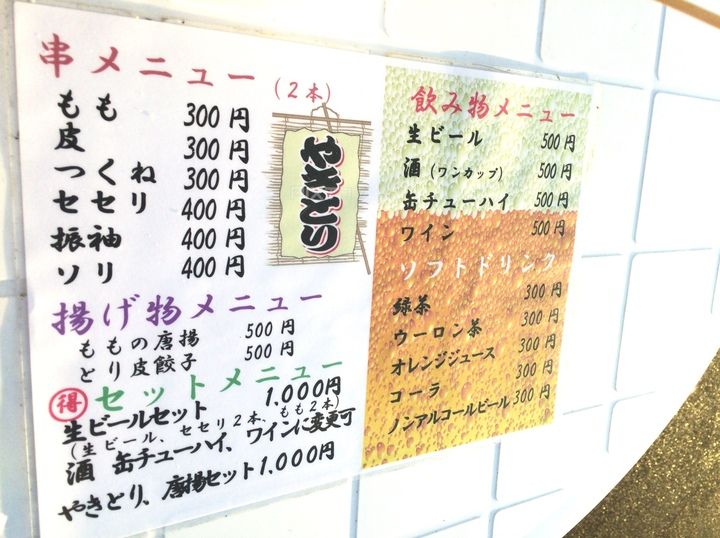 串メニュー(2本)
もも 300円
皮 300円
つくね 300円
セセリ 400円
振袖 400円
ソリ 400円
やきとり
揚げ物メニュー
ももの唐揚 500円
とり皮餃子 500円
得 セットメニュー
生ビールセット 1,000円
(生ビール、セセリ2本、もも2本)
酒 缶チューハイ、ワインに変更可
やきとり、唐揚セット1,000円
飲み物メニュー
生ビール 500円
酒(ワンカップ) 500円
缶チューハイ 500円
ワイン 500円
ソフトドリンク
緑茶 300円
ウーロン茶 300円
オレンジジュース 300円
コーラ 300円
ノンアルコールビール 300円